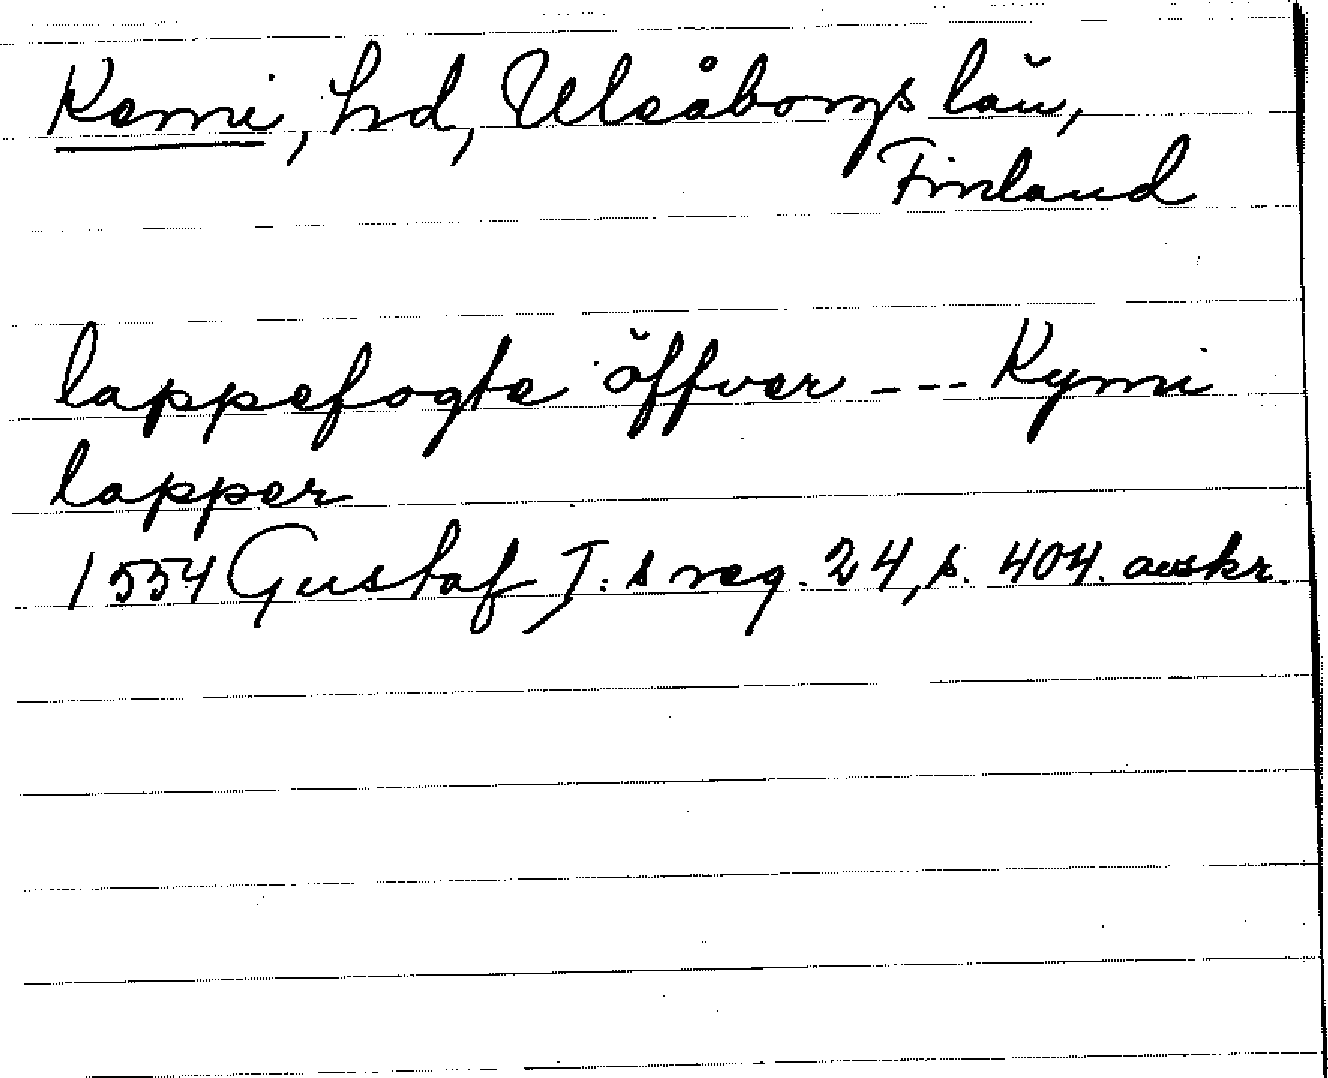 Kemi, hd, Uleåborgs län,
Finland
lappefogte öffver --- Kymi
lapper
1554 Gustaf I:s reg. 24, s. 404. avskr.